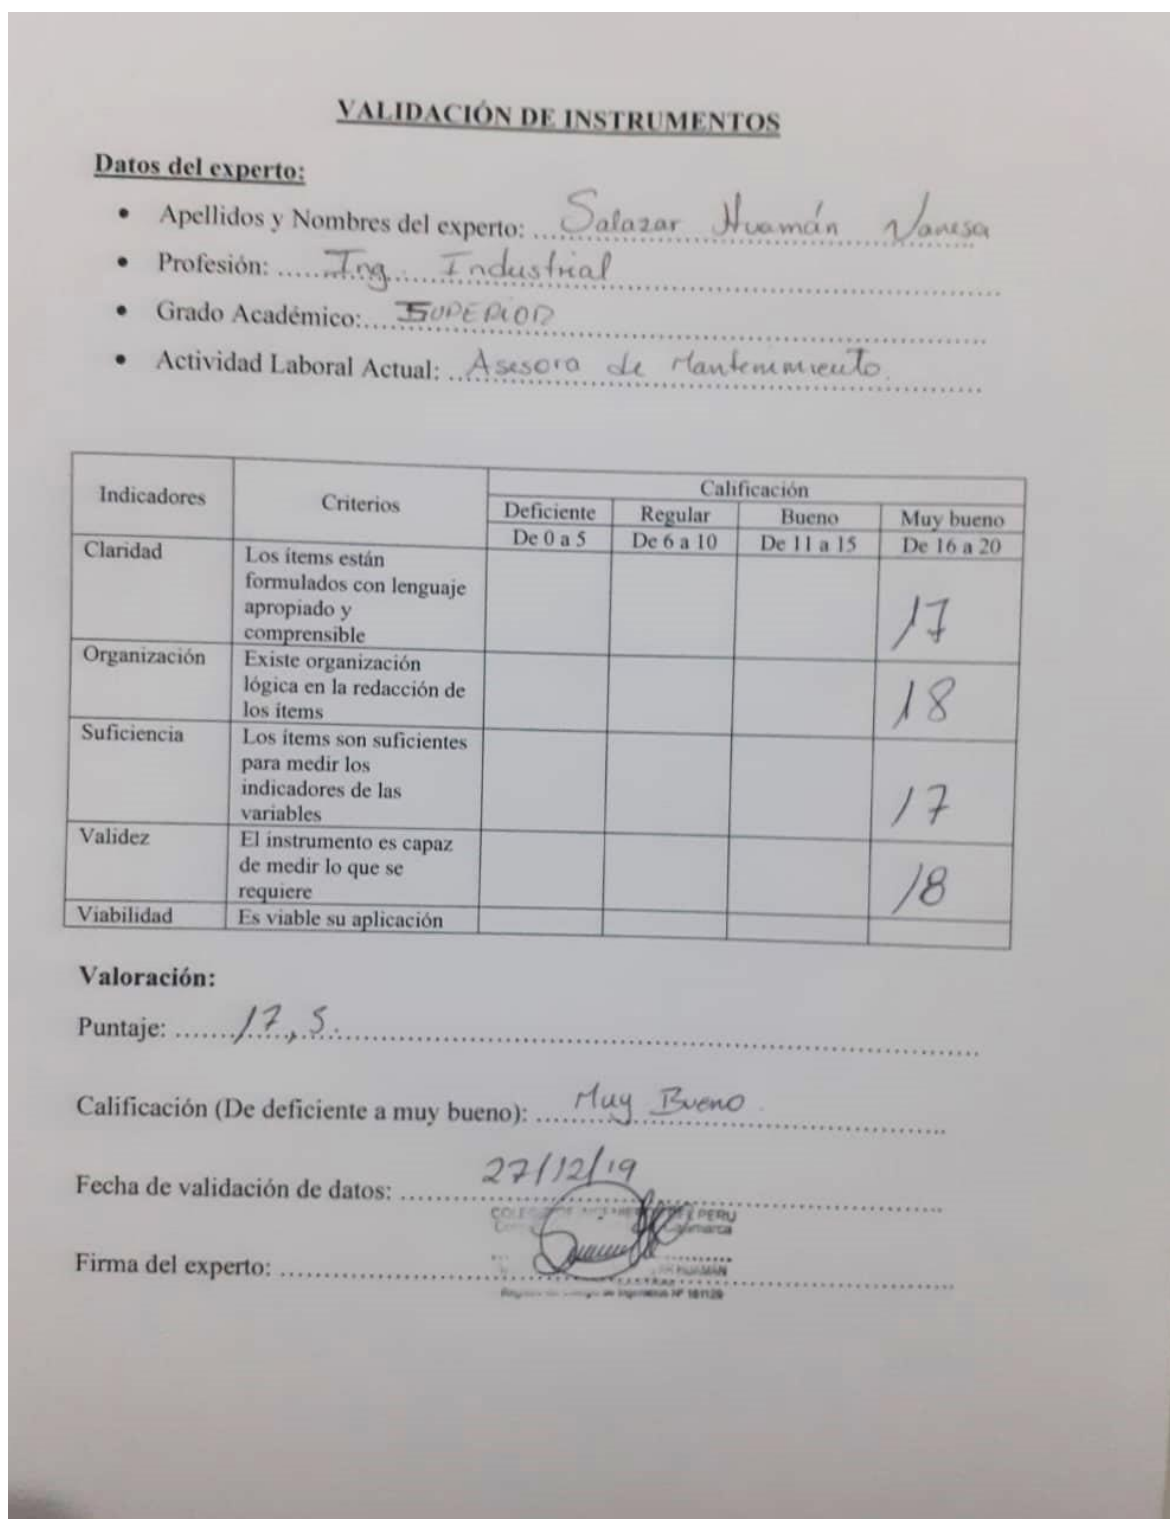 VALIDACIÓN DE INSTRUMENTOS
Datos del experto:
• Apellidos y Nombres del experto: Salazar Huamán Vanesa
• Profesión: Ing. Industrial
• Grado Académico: SUPERIOR
• Actividad Laboral Actual: Asesora de Mantenimiento.
Indicadores Criterios Calificación
Deficiente Regular Bueno Muy bueno
De 0 a 5 De 6 a 10 De 11 a 15 De 16 a 20
Claridad Los ítems están
formulados con lenguaje
apropiado y
comprensible 17
Organización Existe organización
lógica en la redacción de
los ítems 18
Suficiencia Los ítems son suficientes
para medir los
indicadores de las
variables 17
Validez El instrumento es capaz
de medir lo que se
requiere 18
Viabilidad Es viable su aplicación
Valoración:
Puntaje: 17,5.
Calificación (De deficiente a muy bueno): Muy Bueno.
Fecha de validación de datos: 27/12/19
PERU
Firma del experto:
HUAMÁN